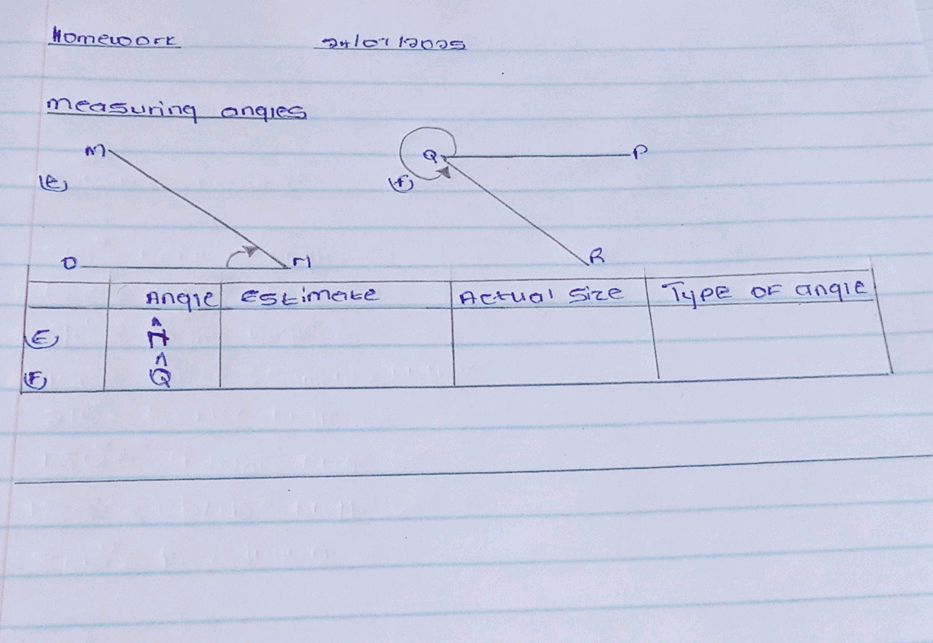 Homework 24/07/2025
measuring angles
M Q P
(e) (f)
O N R
Angle Estimate Actual Size Type of angle
(E) N̂
(F) Q̂